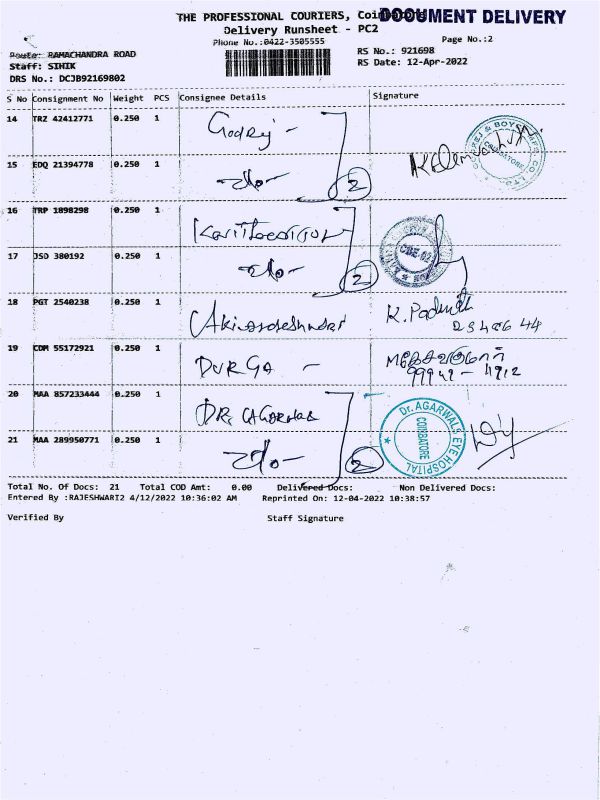 THE PROFESSIONAL COURIERS, Coimbatore
DOCUMENT DELIVERY
Delivery Runsheet - PC2
Phone No.:0422-3505555
Page No.:2
Route: RAMACHANDRA ROAD
RS No.: 921698
Staff: SIHIK
RS Date: 12-Apr-2022
DRS No.: DCJB92169802
S No Consignment No Weight PCS Consignee Details Signature
14 TRZ 42412771 0.250 1 Godrej -
15 EDQ 21394778 0.250 1 -do- 2
16 TRP 1898298 0.250 1
17 JSD 380192 0.250 1 -do- 2
CBE-02
18 PGT 2540238 0.250 1 K. Padm
19 COM 55172921 0.250 1 DURGA -
99949 - 4912
20 MAA 857233444 0.250 1 DR. AGARWAL
21 MAA 289950771 0.250 1 -do- 2
Dr. AGARWALS EYE HOSPITAL
COIMBATORE
Total No. Of Docs: 21 Total COD Amt: 0.00 Delivered Docs: Non Delivered Docs:
Entered By :RAJESHWARI2 4/12/2022 10:36:02 AM Reprinted On: 12-04-2022 10:38:57
Verified By Staff Signature